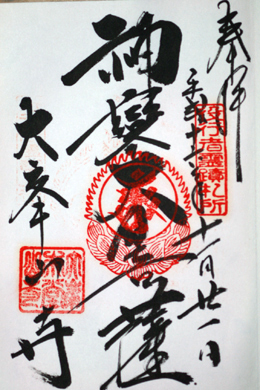 奉拝
役行者霊蹟札所
平成十二年十一月廿一日
神變大菩薩
大峯山寺